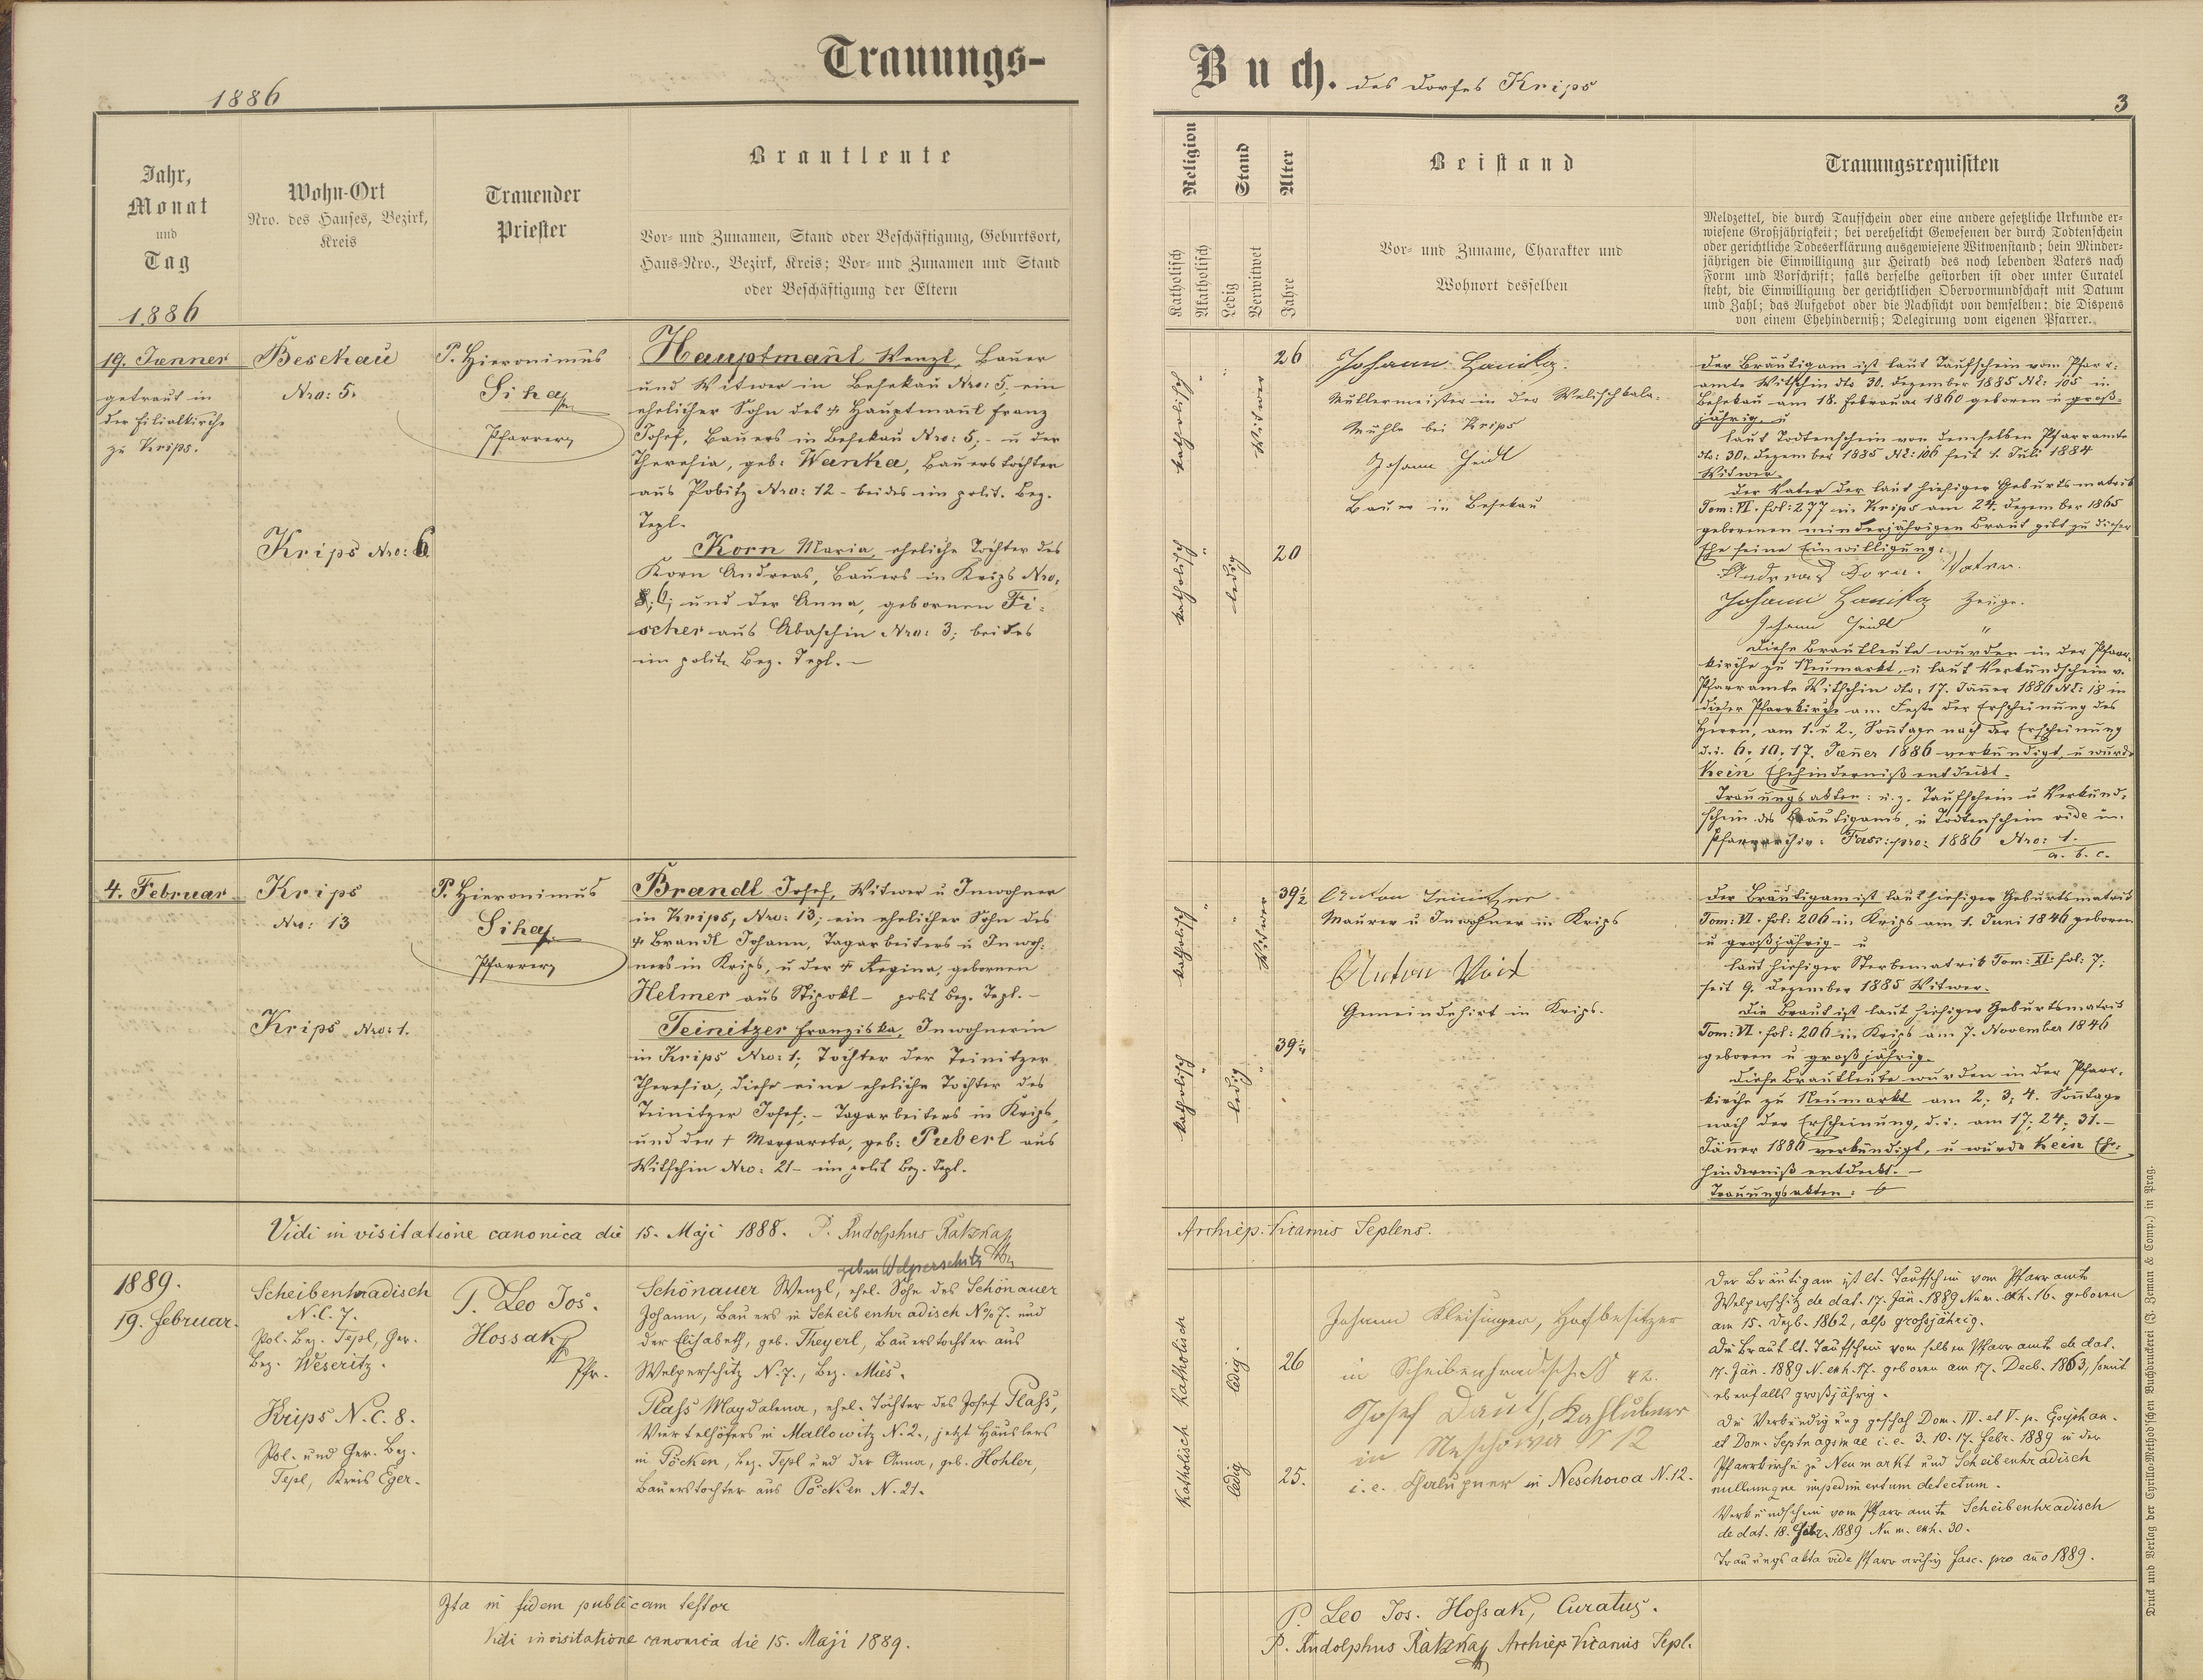 Trauungs-
1886
Jahr,
Monat
und
Tag
1886
Wohn-Ort
Nro. des Hauses, Bezirk,
Kreis
Trauender
Priester
Brautleute
Vor- und Zunamen, Stand oder Beschäftigung, Geburtsort,
Haus-Nro., Bezirk, Kreis; Vor- und Zunamen und Stand
oder Beschäftigung der Eltern
19. Jænner
getraut in
der Filialkirche
zu Krips.
Besekau
Nro: 5.
Krips Nro: 6
P. Hieronimus
Siha
Pfarrer
Hauptmañl Wenzl, Bauer
und Witwer in Besekau Nro: 5, ein
ehelicher Sohn des † Hauptmañl Franz
Josef, Bauers in Besekau Nro: 5; - u der
Theresia, geb: Wanka, Bauers tochter
aus Pobitz Nro: 12 - beides im polit. Bez.
Tepl.
Korn Maria, eheliche Tochter des
Korn Andreas, Bauers in Krips Nro.
6; und der Anna, gebornen Fi-
scher aus Abaschin Nro: 3; beides
im polit. Bez. Tepl. -
4. Februar
Krips
Nro: 13
Krips Nro: 1.
P. Hieronimus
Siha
Pfarrer
Brandl Josef, Witwer u Inwohner
in Krips, Nro: 13; ein ehelicher Sohn des
† Brandl Johann, Tagarbeiters u Inwoh-
ners in Krips, u der † Regina, gebornen
Helmer aus Stipokl - polit Bez. Tepl. -
Teinitzer Franziska, Inwohnerin
in Krips Nro: 1; Tochter der Teinitzer
Theresia; diese eine eheliche Tochter des
Teinitzer Josef; - Tagarbeiters in Krips,
und der † Margareta, geb: Puberl aus
Witschin Nro: 21 - im polit Bez. Tepl.
Vidi in visitatione canonica die 15. Maji 1888. P. Rudolphus Ratzka
1889.
19. Februar.
Scheibenhradisch
N.C. 7.
Pol. Bez. Tepl, Ger.
Bez. Weseritz.
Krips N.C. 8.
Pol. und Ger. Bez.
Tepl, Kreis Eger.
P. Leo Jos.
Hossak
Pfr.
Schönauer Wenzl, ehel. Sohn des Schönauer
Johann, Bauers in Scheibenhradisch No 7. und
der Elisabeth, geb. Theyerl, Bauerstochter aus
Welperschitz N. 7., Bez. Mies.
Plass Magdalena, ehel. Tochter des Josef Plass,
Viertelhöfers in Mallowitz N. 2., jetzt Häuslers
in Pöcken, Bez. Tepl und der Anna, geb. Hohler,
Bauerstochter aus Pöcken N. 21.
Ita in fidem publicam testor
Vidi in visitatione canonica die 15. Maji 1889.
Buch. des Dorfes Krips
3
Religion
Katholisch
Akatholisch
Stand
Ledig
Verwitwet
Alter
Jahre
Beistand
Vor- und Zuname, Charakter und
Wohnort desselben
Trauungsrequisiten
Meldzettel, die durch Taufschein oder eine andere gesetzliche Urkunde er-
wiesene Großjährigkeit; bei verehelicht Gewesenen der durch Todtenschein
oder gerichtliche Todeserklärung ausgewiesene Witwenstand; beim Minder-
jährigen die Einwilligung zur Heirath des noch lebenden Vaters nach
Form und Vorschrift; falls derselbe gestorben ist oder unter Curatel
steht, die Einwilligung der gerichtlichen Obervormundschaft mit Datum
und Zahl; das Aufgebot oder die Nachsicht von demselben; die Dispens
von einem Ehehinderniß; Delegirung vom eigenen Pfarrer.
katholisch
Witwer
26
katholisch
ledig
20
Johann Hanika
Müllermeister in der
Mühle bei Krips
Johann Heidl
Bauer in Besekau
Der Bräutigam ist laut Taufschein vom Pfarr-
amte Witschin dto 30. Dezember 1885 N.E: 105 in
Besekau am 18. Februar 1860 geboren u groß-
jährig, u
laut Todtenschein von demselben Pfarramte
dto: 30. Dezember 1885 N.E: 106 seit 1. Juli 1884
Witwer.
Der Vater der laut hiesiger Geburtsmatrik
Tom: VI. fol: 277 in Krips am 24. Dezember 1865
geborenen minderjährigen Braut gibt zu dieser
Ehe seine Einwilligung:
Andreas Korn. Vater.
Johann Hanika Zeuge.
Johann Heidl "
Diese Brautleute wurden in der Pfarr-
kirche zu Neumarkt, u laut Verkündschein v.
Pfarramte Witschin dto: 17. Jänner 1886 N.E: 18 in
dieser Pfarrkirche am Feste der Erscheinung des
Herrn, am 1. u 2., Soñtage nach der Erscheinung
d.i. 6; 10; 17. Jæñer 1886 verkündigt, u wurde
kein Ehehinderniß entdeckt.
Trauungsakten: u.z. Taufschein u Verkünd-
schein des Bräutigams, u Todtenschein vide in
Pfarrarchiv: Fasc: pro: 1886 Nro: 1.
a. b. c.
katholisch
Witwer
39½
katholisch
ledig
39¼
Anton Teinitzer
Maurer u Inwohner in Krips
Anton Voit
Gemeindehirt in Krips.
Der Bräutigam ist laut hiesiger Geburtsmatrik
Tom: VI. fol: 206 in Krips am 1. Juni 1846 geboren
u großjährig - u
laut hiesiger Sterbematrik Tom: XI. fol: 7;
seit 9. Dezember 1885 Witwer.
Die Braut ist laut hiesiger Geburtsmatrik
Tom: VI. fol: 206 in Krips am 7. November 1846
geboren u großjährig.
Diese Brautleute wurden in der Pfarr-
kirche zu Neumarkt am 2; 3; 4. Soñtage
nach der Erscheinung, d.i. am 17; 24; 31. -
Jäñer 1886 verkündigt, u wurde kein Ehe-
hinderniß entdeckt. -
Trauungsakten:
Archiep. Vicarius Teplens.
Katholisch
ledig.
26
Katholisch
ledig
25.
Johann Kleisinger, Hofbesitzer
in Scheibenhradisch
Josef Dauth, Kahlubner
in Neschowa N 12
i.e. Chalupner in Neschowa N. 12.
Der Bräutigam ist lt. Taufschein vom Pfarramte
Welperschitz de dat. 17. Jän. 1889 Num. exh. 16. geboren
am 15. Dezb. 1862, also grossjährig.
Die Braut lt. Taufschein vom selben Pfarramte de dat.
17. Jän. 1889 N. exh. 17. geboren am 17. Decb. 1863, somit
ebenfalls großjährig.
Die Verkündigung geschah Dom. IV. et V. p. Epiphan.
et Dom. Septuagsmae i.e. 3. 10. 17. Febr. 1889 in der
Pfarrkirche zu Neumarkt und Scheibenhradisch
nullumque impedimentum detectum.
Verkündschein vom Pfarramte Scheibenhradisch
de dat. 18. Febr. 1889 Num. exh. 30.
Trauungsakta vide Pfarrarchiv fasc. pro año 1889.
P. Leo Jos. Hossak, Curatus.
P. Rudolphus Ratzka Archiep Vicarius Tepl.
Druck und Verlag der Cyrillo-Method'schen Buchdruckerei (J. Zeman & Comp.) in Prag.